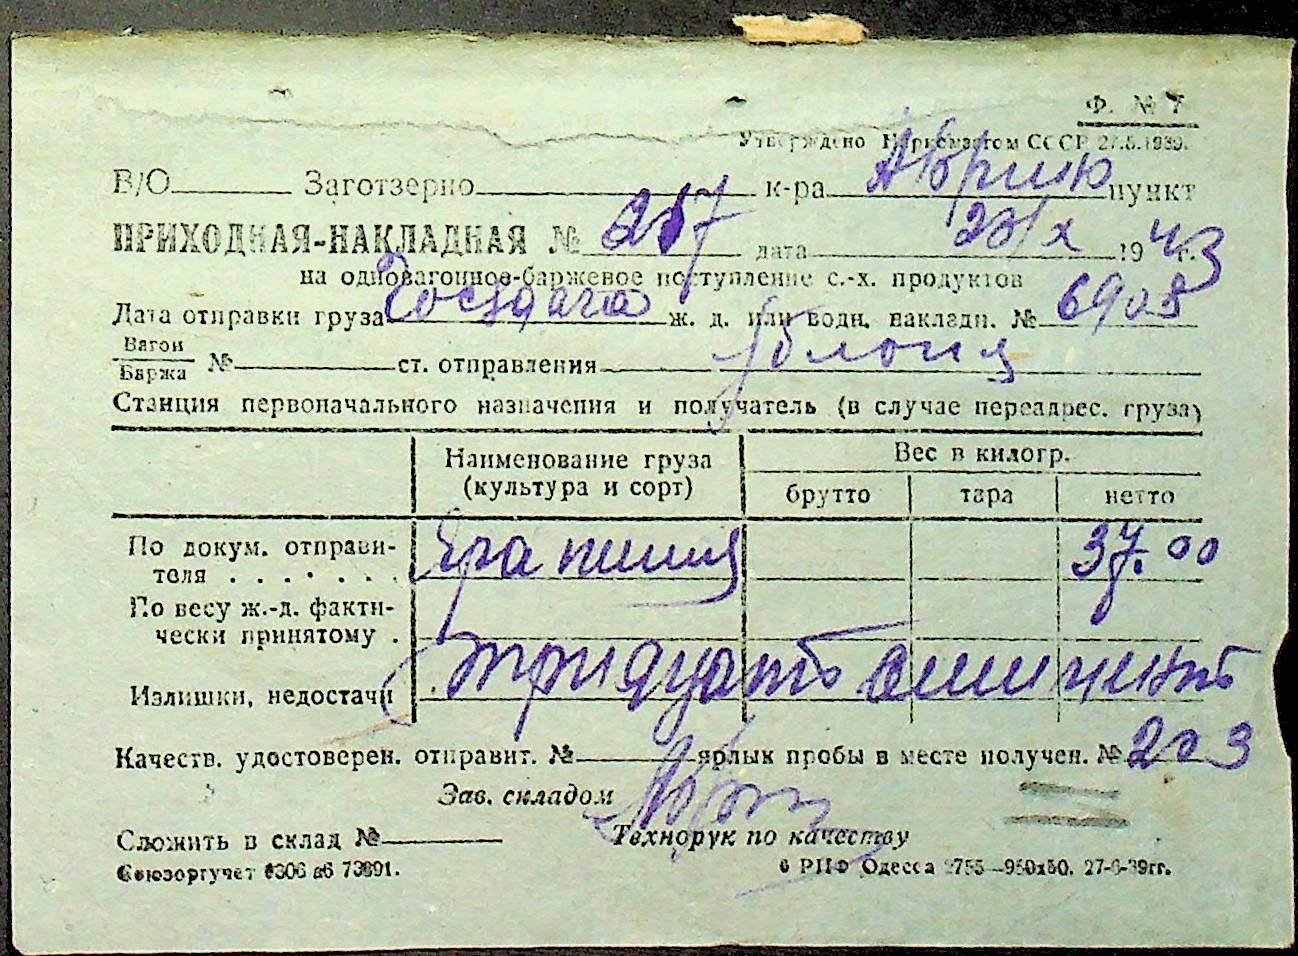 Ф. № 7
Утверждено Наркоматом СССР 27.5.1939.
В/О Заготзерно к-ра пункт
ПРИХОДНАЯ-НАКЛАДНАЯ № 217 дата 23/X 1943 г.
на одновагонное-баржевое поступление с.-х. продуктов
Дата отправки груза Госсдача ж. д. или водн. накладн. № 6903
Вагон
Баржа № ст. отправления
Станция первоначального назначения и получатель (в случае переадрес. груза)
Наименование груза (культура и сорт) Вес в килогр.
брутто тара нетто
По докум. отправи-
теля . . . . . . . Яра пшениця 37.00
По весу ж.-д. факти-
чески принятому .
Излишки, недостачи тридцать
Качеств. удостоверен. отправит. № ярлык пробы в месте получен. № 203
Зав. складом
Сложить в склад № Технорук по качеству
Союзоргучет 6306 аб 73891.
6 РПФ Одесса 2755—950х50. 27-6-39гг.